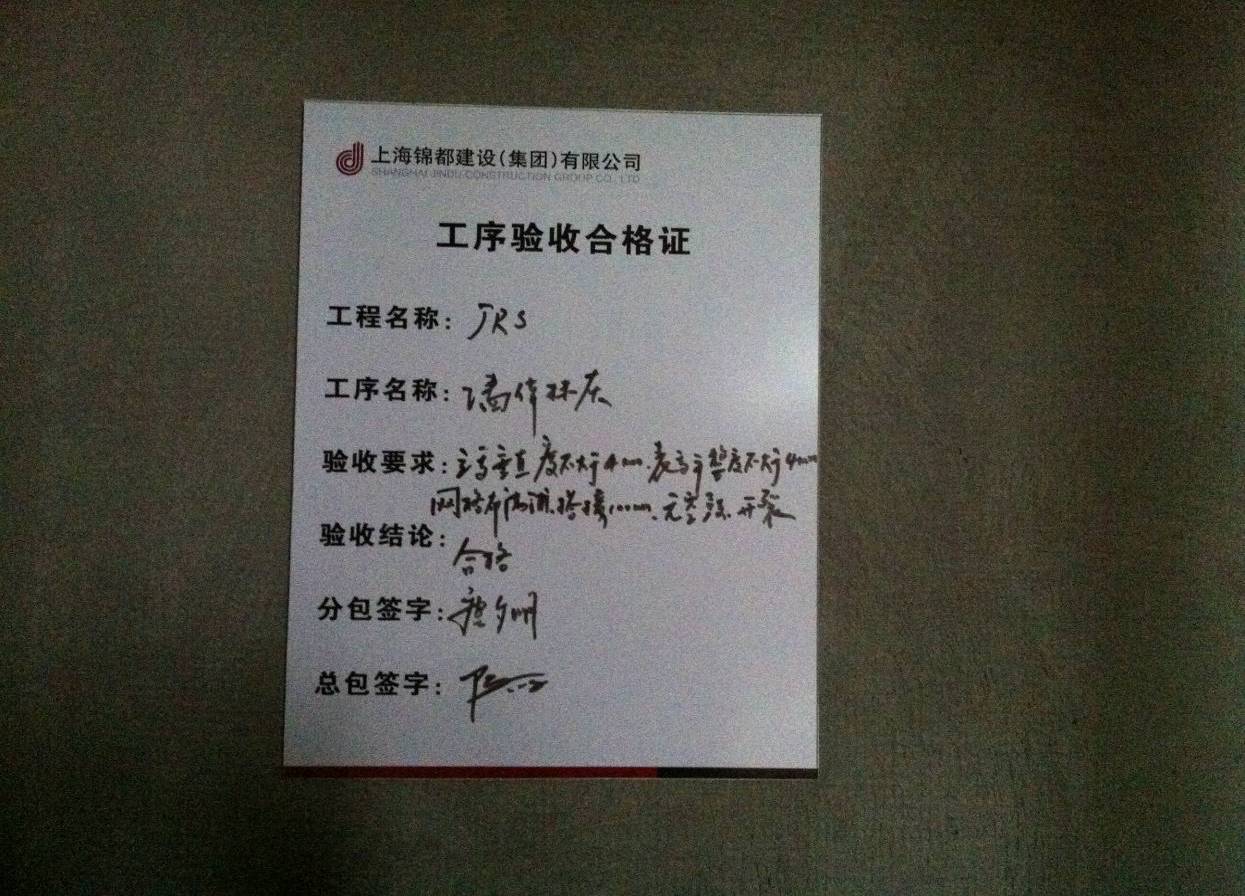 上海锦都建设(集团)有限公司
SHANGHAI JINDU CONSTRUCTION GROUP CO., LTD
工序验收合格证
工程名称: JRS
工序名称:
验收要求: 立面垂直度不大于4mm、表面平整度不大于4mm
网格布 搭接100mm、无空鼓、开裂
验收结论: 合格
分包签字:
总包签字: